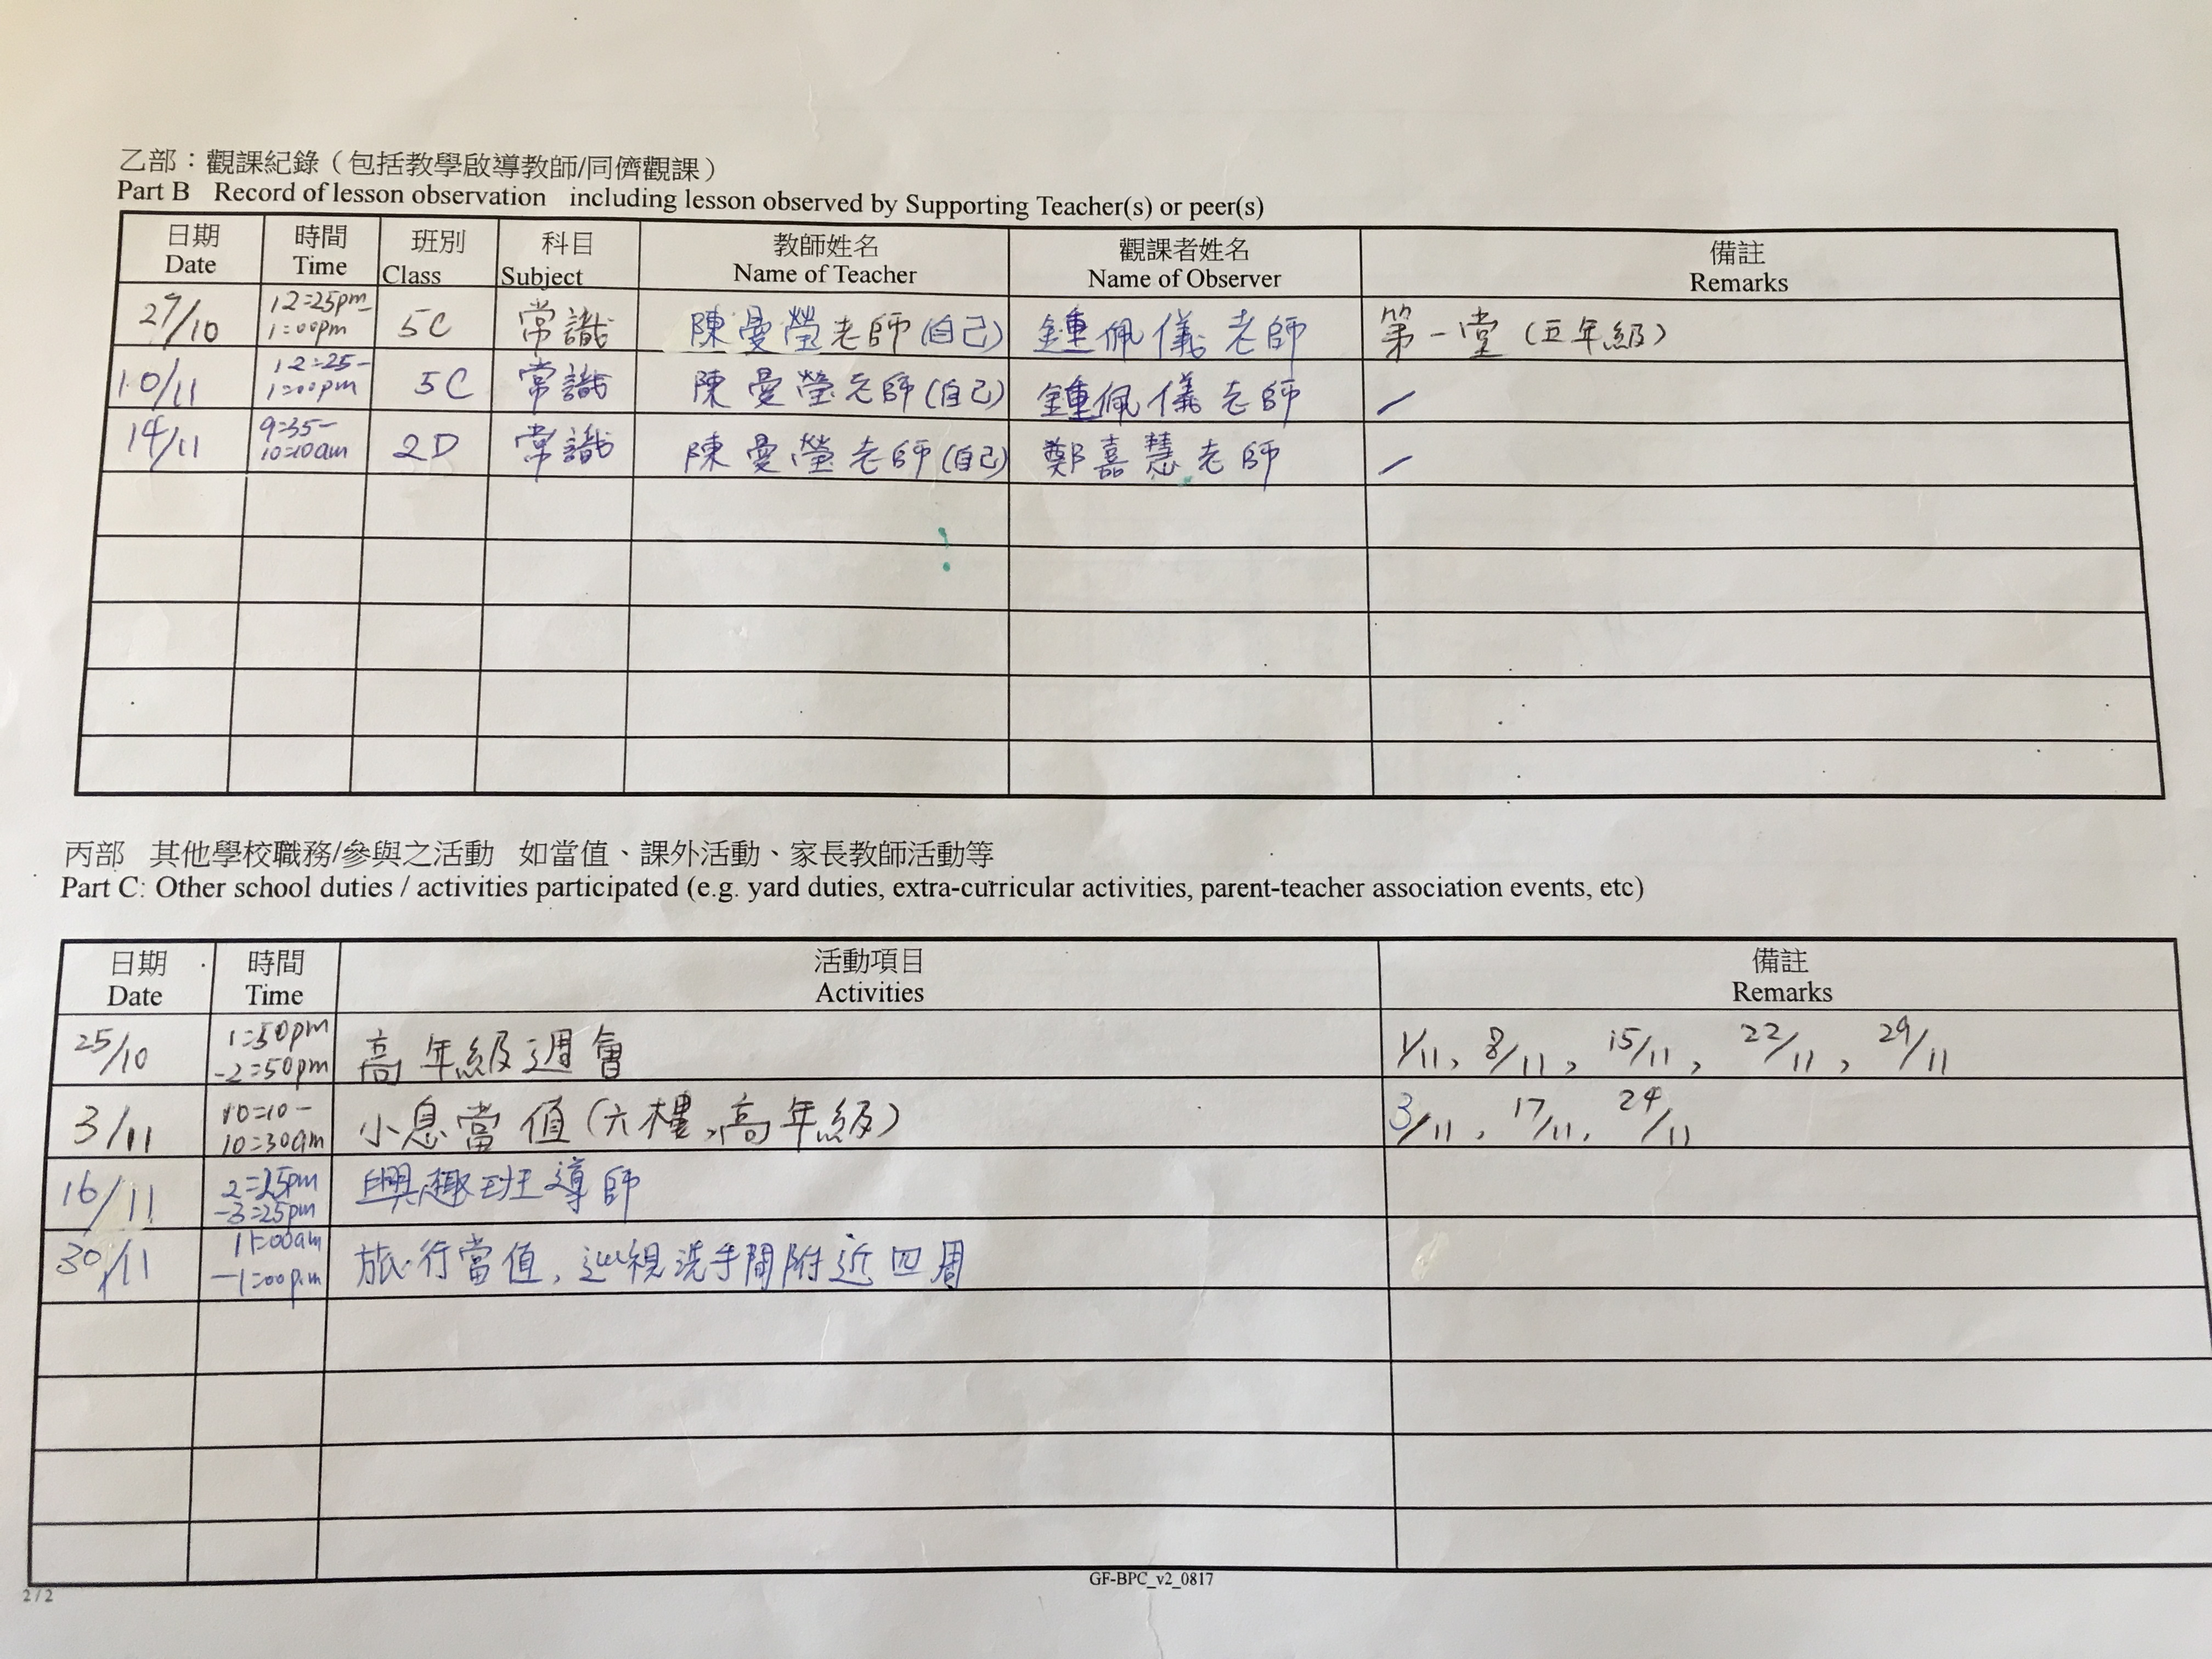 乙部：觀課紀錄（包括教學啟導教師/同儕觀課）
Part B Record of lesson observation including lesson observed by Supporting Teacher(s) or peer(s)
日期 時間 班別 科目 教師姓名 觀課者姓名 備註
Date Time Class Subject Name of Teacher Name of Observer Remarks
27/10 12:25pm- 1:00pm 5C 常識 陳曼瑩老師(自己) 鍾佩儀老師 第一堂（五年級）
10/11 12:25- 1:00pm 5C 常識 陳曼瑩老師(自己) 鍾佩儀老師 /
14/11 9:35- 10:10am 2D 常識 陳曼瑩老師(自己) 鄭嘉慧老師 /
丙部 其他學校職務/參與之活動 如當值、課外活動、家長教師活動等
Part C: Other school duties / activities participated (e.g. yard duties, extra-curricular activities, parent-teacher association events, etc)
日期 時間 活動項目 備註
Date Time Activities Remarks
25/10 1:50pm -2:50pm 高年級週會 1/11, 8/11, 15/11, 22/11, 29/11
3/11 10:10- 10:30am 小息當值(六樓,高年級) 3/11, 17/11, 24/11
16/11 2:25pm -3:25pm 興趣班導師
30/11 11:00am -1:00p.m 旅行當值, 巡視洗手間附近四周
GF-BPC_v2_0817
2 / 2